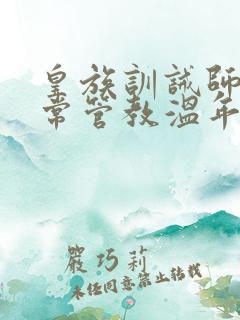 皇族訓誡師
常管教溫年
嚴巧莉
未任同意禁止轉載